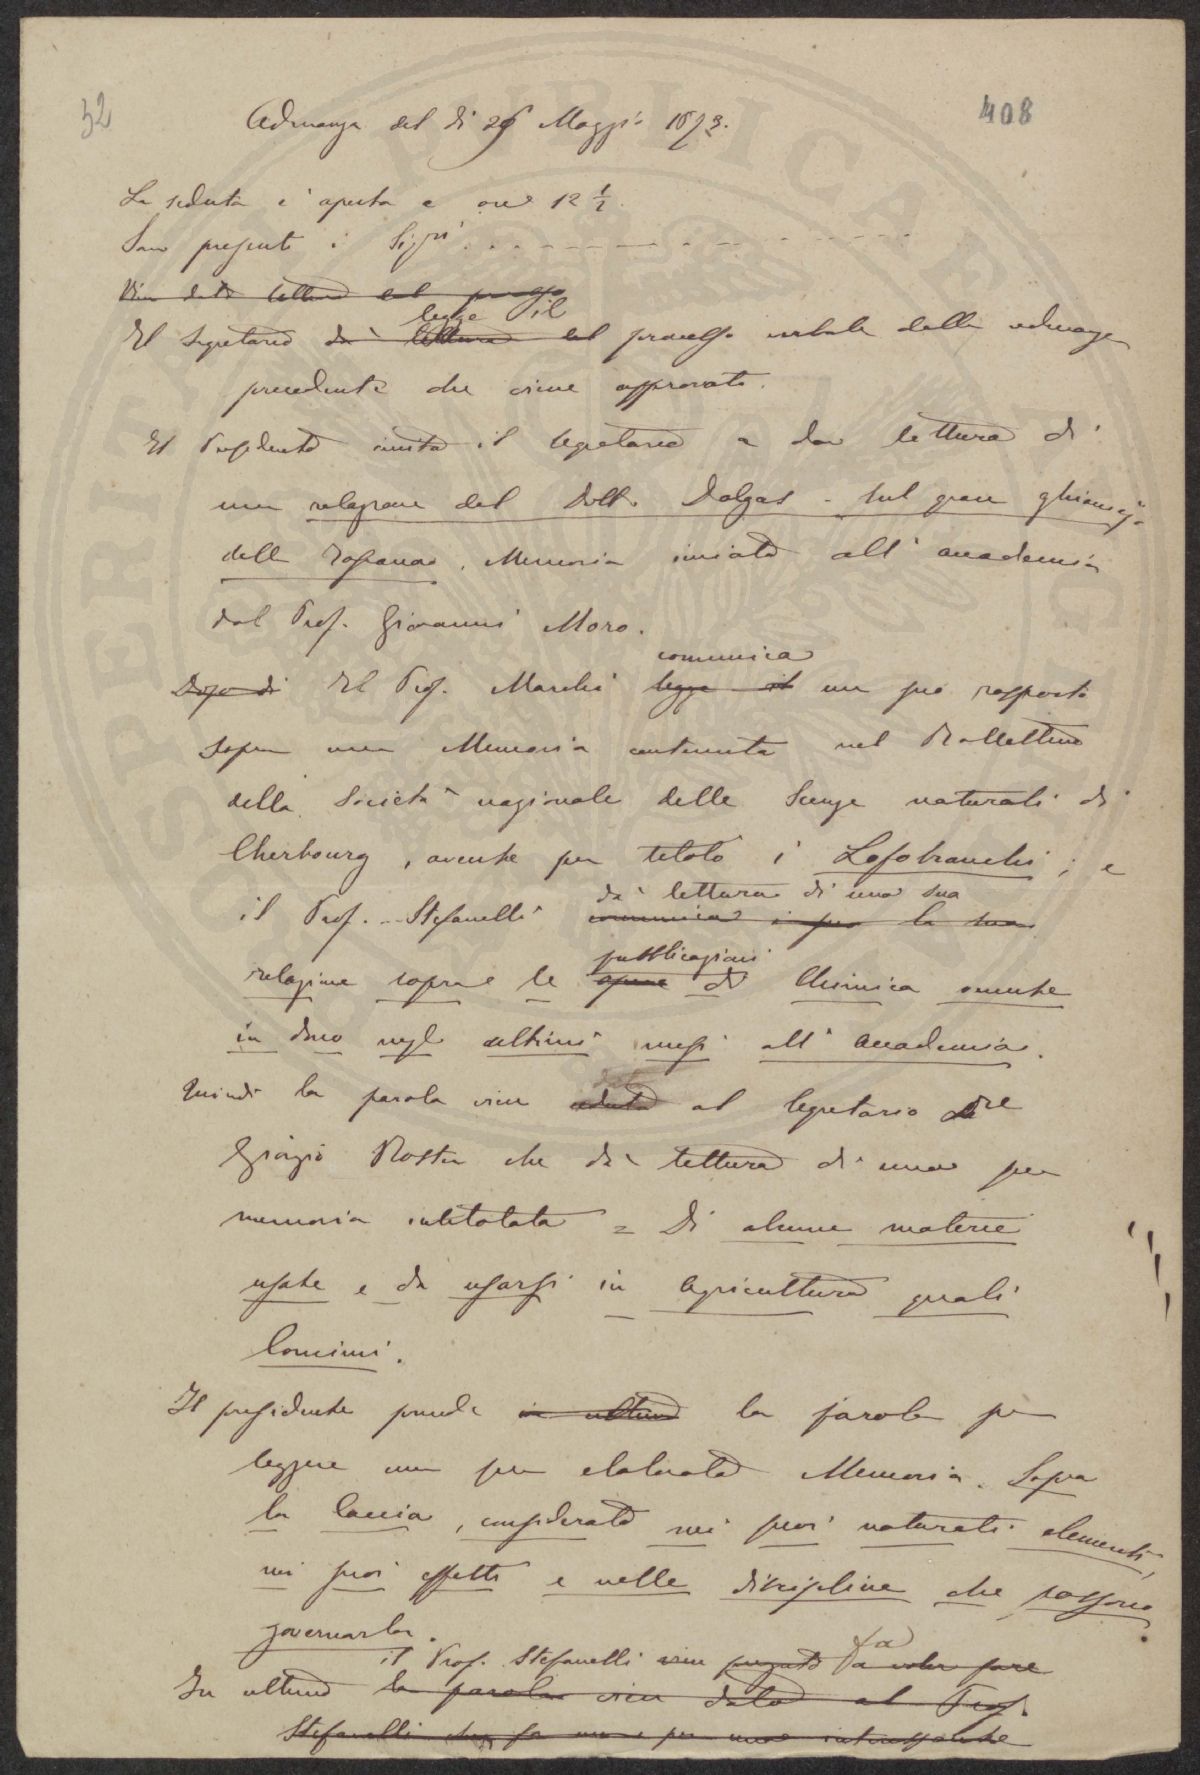 52
408
Adunanza del dì 26 Maggio 1873.
La seduta è aperta a ore 12 1/2
Sono presenti i Sigri
Vien data lettura del processo
legge il
Il Segretario dà lettura del processo verbale della adunanza
precedente che viene approvato.
Il Presidente invita il segretario a dar lettura di
una relazione del Dott. Dalgas - sul gran ghiacciajo
della Toscana, Memoria inviata all'Accademia
dal Prof. Giovanni Moro.
comunica
Dopo di Il Prof. Marchi legge il un suo rapporto
sopra una Memoria contenuta nel Bollettino
della Società nazionale delle Scienze naturali di
Cherbourg, avente per titolo i Lofobranchi; e
dà lettura di una sua
il Prof. Stefanelli comunica la sua
pubblicazioni
relazione sopra le opere di Chimica avute
in dono negli ultimi mesi all'Accademia.
data
Quindi la parola vien ceduta al Segretario Dre
Giorgio Roster che dà lettura di una sua
memoria intitolata = Di alcune materie
usate e da usarsi in agricultura quali
Concimi.
Il presidente prende in ultimo la parola per
leggere una sua elaborata Memoria. Sopra
la Caccia, considerata nei suoi naturali elementi,
nei suoi effetti e nelle discipline che possono
governarla.
il Prof. Stefanelli vien pregato a voler fare
fa
In ultimo la parola vien data al Prof.
Stefanelli che fa una interessante